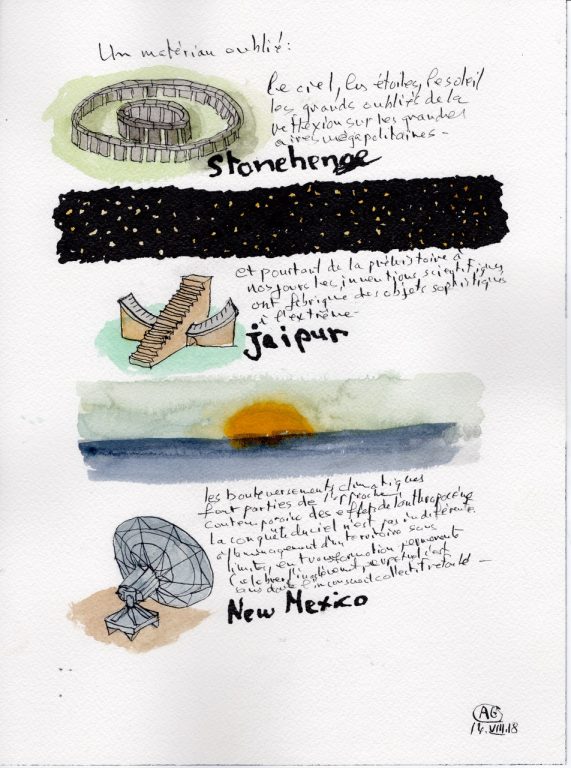 Un matériau oublié:
Le ciel, les étoiles, le soleil
les grands oubliés de la
réflexion sur les grandes
aires mégapolitaines -
Stonehenge
et pourtant de la préhistoire à
nos jours les inventions scientifiques
ont fabriqué des objets sophistiqués
à l'extrême -
jaipur
les bouleversements climatiques
font parties de l'approche
contemporaine des effets de l'anthropocène
la conquête du ciel n'est pas indifférente
à l'aménagement d'un territoire sans
limites, en transformation permanente
perpétuel c'est
sans doute collectif
New Mexico
AG
14.VIII.18